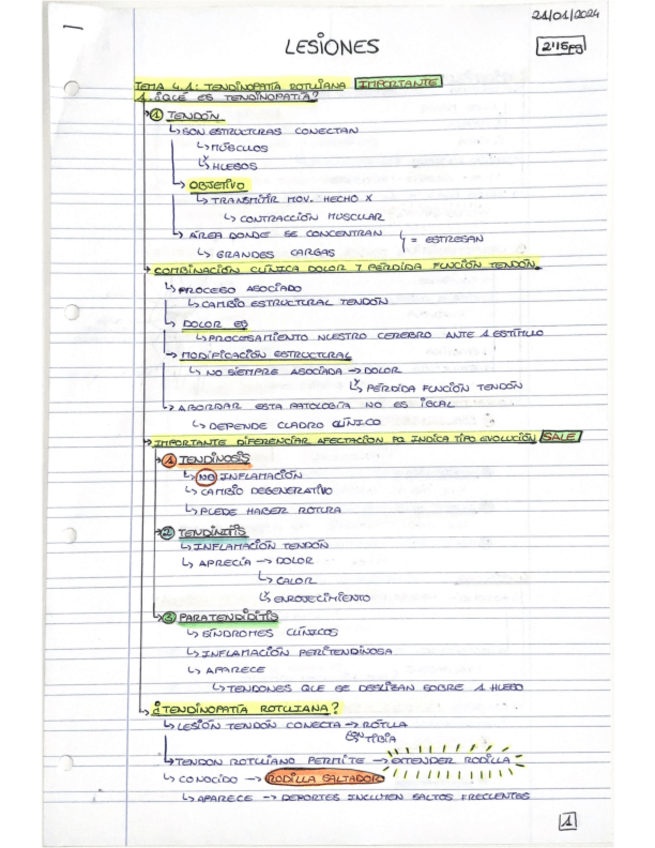 21/01/2024
LESIONES
2'15pg
TEMA 4.1: TENDINOPATÍA ROTULIANA IMPORTANTE
1. ¿QUÉ ES TENDINOPATÍA?
① TENDÓN
↳ SON ESTRUCTURAS CONECTAN
↳ MÚSCULOS
↳ HUESOS
↳ OBJETIVO
↳ TRANSMITIR MOV. HECHO X
↳ CONTRACCIÓN MUSCULAR
↳ ÁREA DONDE SE CONCENTRAN
↳ GRANDES CARGAS
= ESTRESAN
COMBINACIÓN CLÍNICA DOLOR Y PÉRDIDA FUNCIÓN TENDÓN
↳ PROCESO ASOCIADO
↳ CAMBIO ESTRUCTURAL TENDÓN
↳ DOLOR ES
↳ PROCESAMIENTO NUESTRO CEREBRO ANTE 1 ESTÍMULO
→ MODIFICACIÓN ESTRUCTURAL
↳ NO SIEMPRE ASOCIADA → DOLOR
↳ PÉRDIDA FUNCIÓN TENDÓN
↳ ABORDAR ESTA PATOLOGÍA NO ES IGUAL
↳ DEPENDE CUADRO CLÍNICO
IMPORTANTE DIFERENCIAR AFECTACIÓN PQ INDICA TIPO EVOLUCIÓN SALE
① TENDINOSIS
↳ NO INFLAMACIÓN
↳ CAMBIO DEGENERATIVO
↳ PUEDE HABER ROTURA
② TENDINITIS
↳ INFLAMACIÓN TENDÓN
↳ APRECIA → DOLOR
↳ CALOR
↳ ENROJECIMIENTO
③ PARATENDIDITIS
↳ SÍNDROMES CLÍNICOS
↳ INFLAMACIÓN PERITENDINOSA
↳ APARECE
↳ TENDONES QUE SE DESLIZAN SOBRE 1 HUESO
¿TENDINOPATÍA ROTULIANA?
↳ LESIÓN TENDÓN CONECTA → RÓTULA
CON TIBIA
↳ TENDON ROTULIANO PERMITE → EXTENDER RODILLA
↳ CONOCIDO → RODILLA SALTADOR
↳ APARECE → DEPORTES INCLUYEN SALTOS FRECUENTES
1